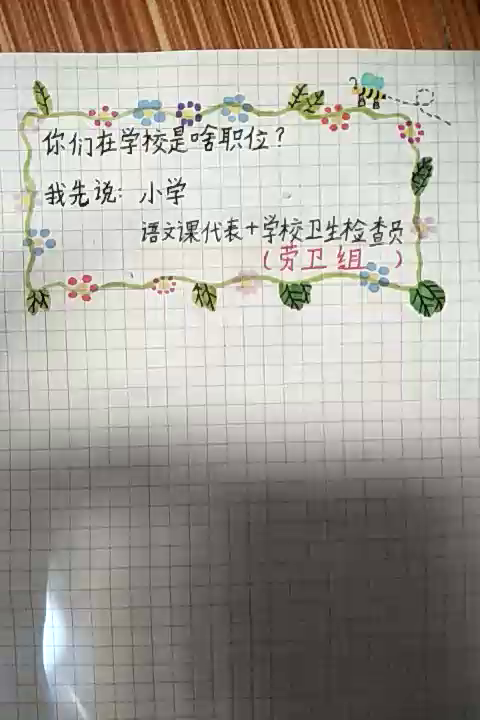 你们在学校是啥职位？
我先说：小学
语文课代表＋学校卫生检查员
（劳卫组）